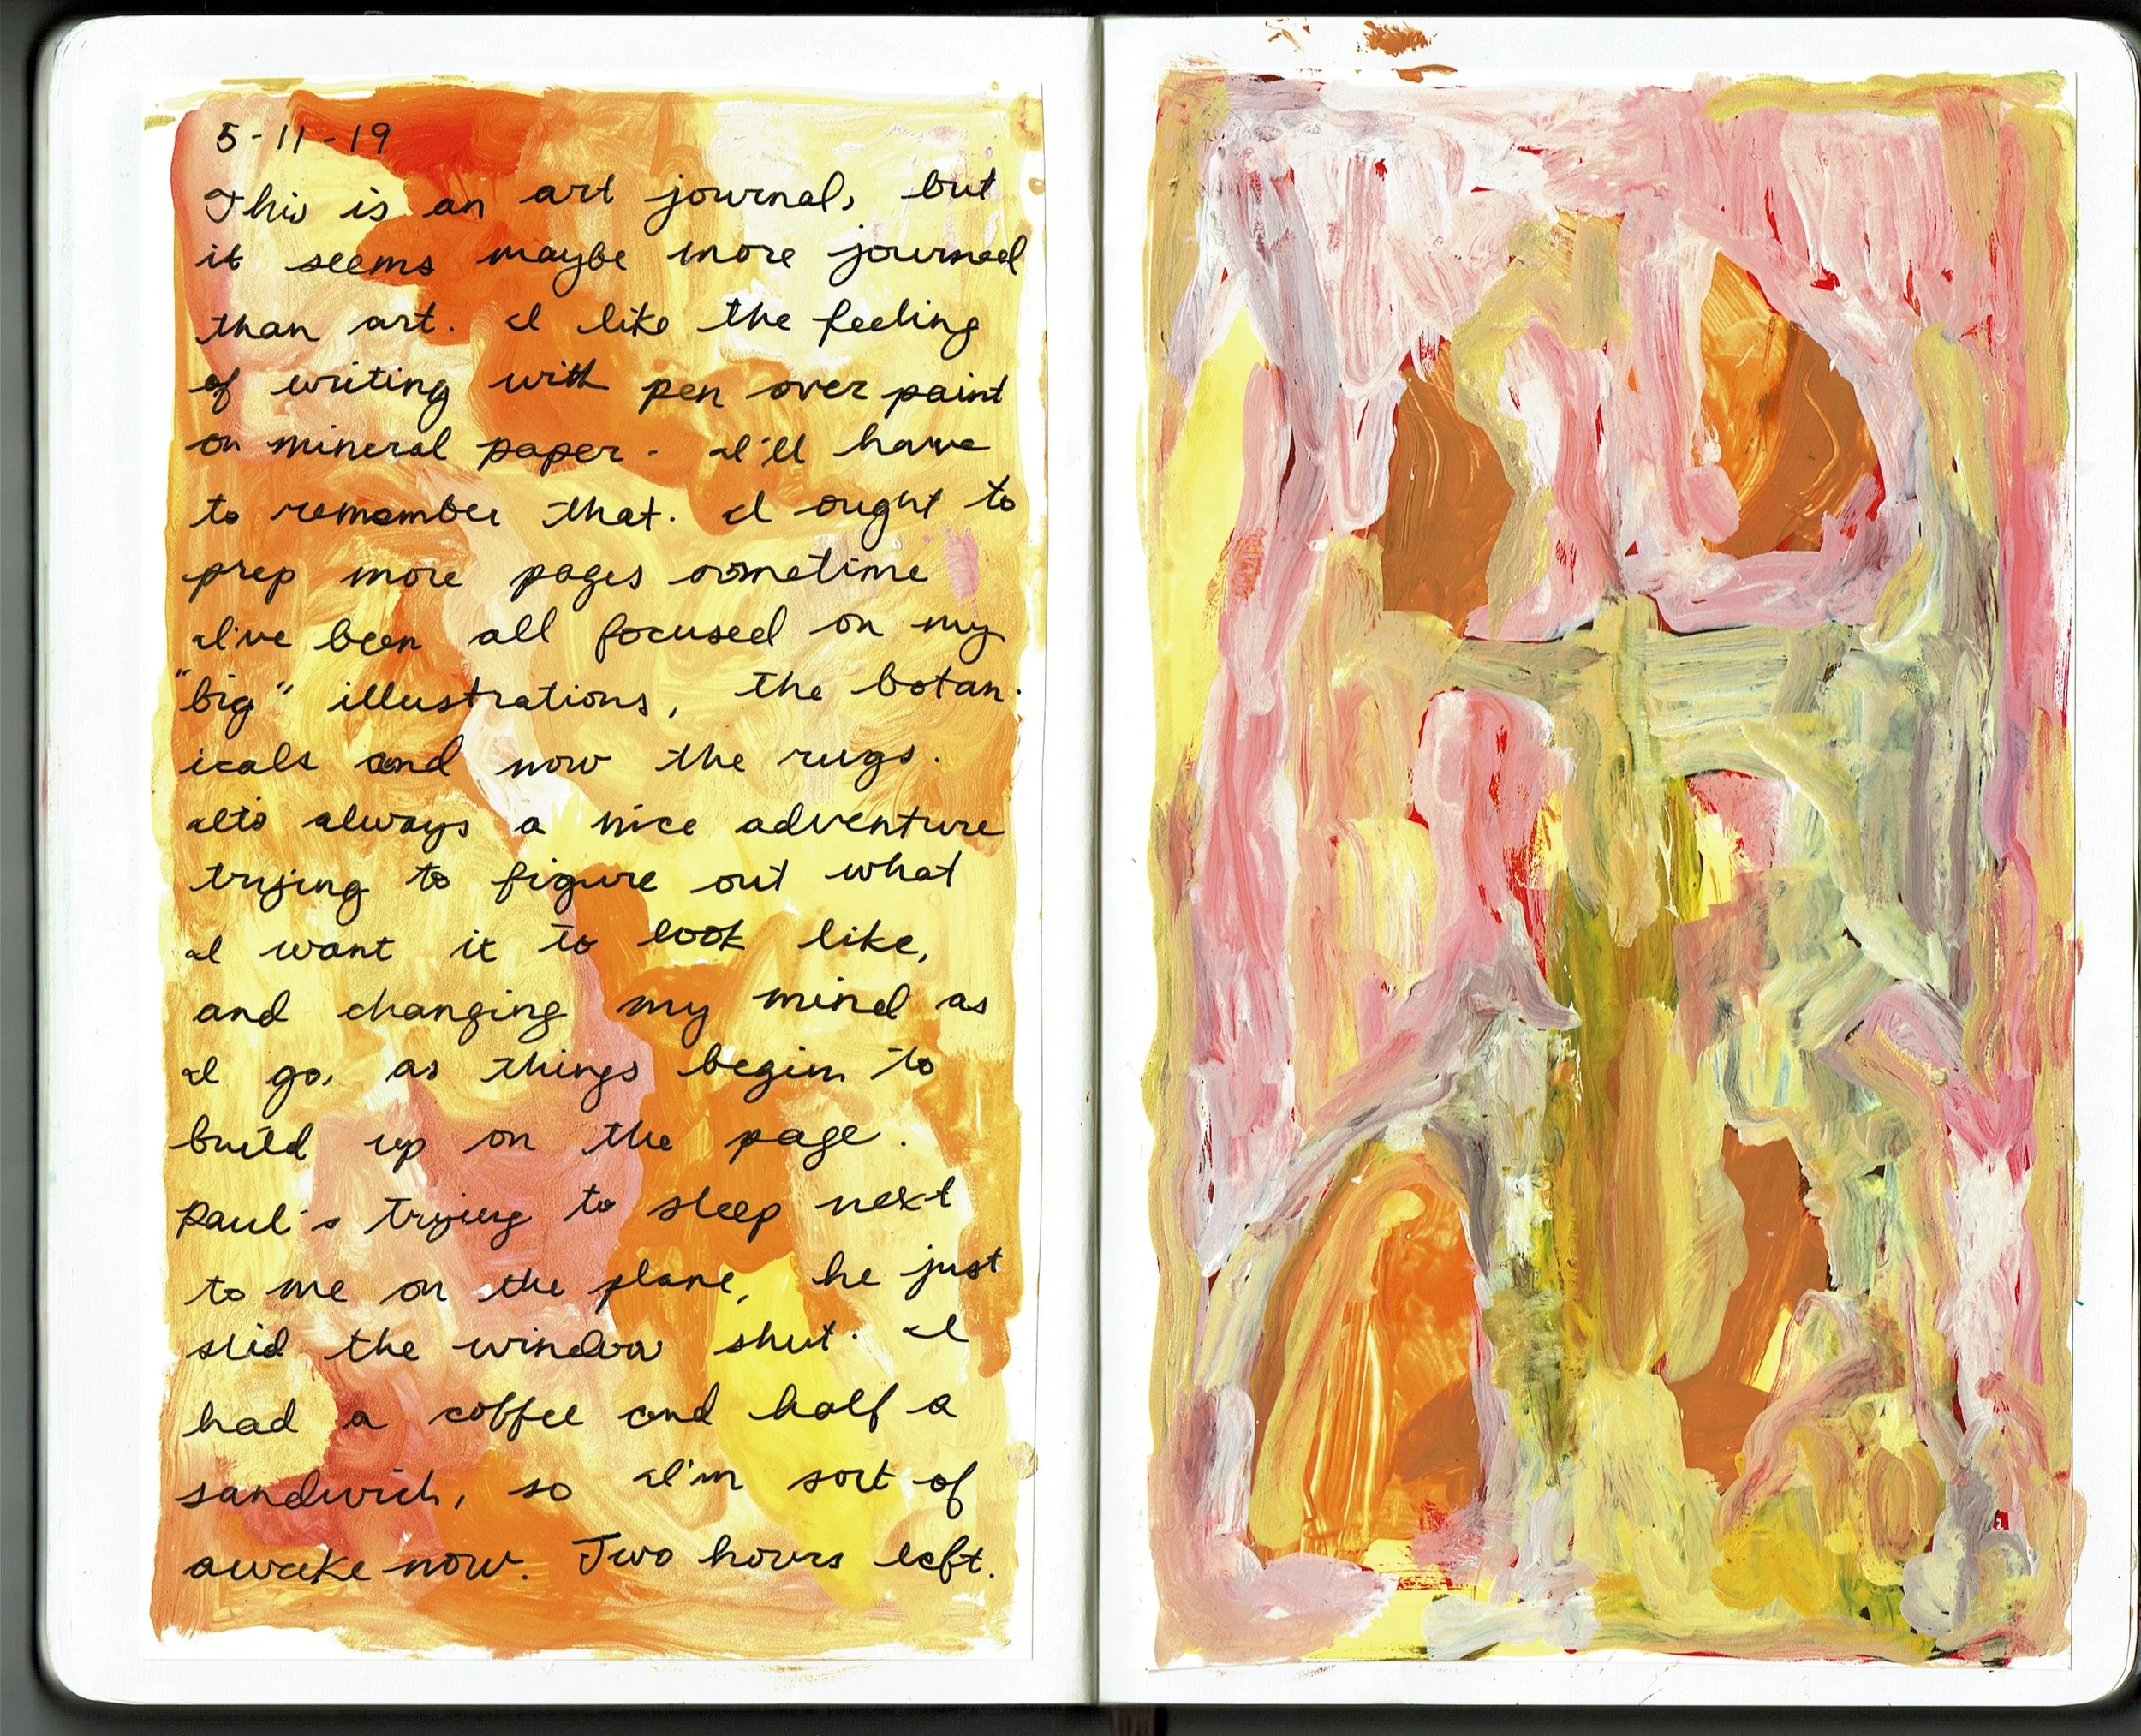 5-11-19
This is an art journal, but
it seems maybe more journal
than art. I like the feeling
of writing with pen over paint
on mineral paper. I'll have
to remember that. I ought to
prep more pages sometime
I've been all focused on my
"big" illustrations, the botan-
icals and now the rugs.
It's always a nice adventure
trying to figure out what
I want it to look like,
and changing my mind as
I go, as things begin to
build up on the page.
Paul's trying to sleep next
to me on the plane, he just
slid the window shut. I
had a coffee and half a
sandwich, so I'm sort of
awake now. Two hours left.